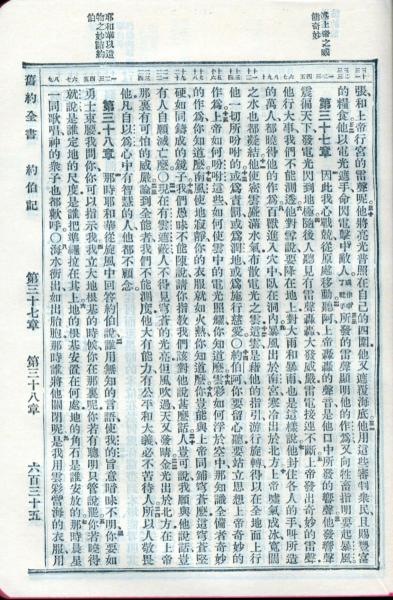 論上帝之威
能奇妙
張和上帝行宮的雷聲呢他將亮光普照在自己的四圍他又遮覆海底他用這些審判衆民且賜豐富
的糧食他以電光遮手命閃電擊中敵人所發的雷聲顯明他的作爲又向牲畜指明要起暴風
第三十七章 因此我心戰兢從原處移動聽阿上帝轟轟的聲音是他口中所發的響聲他發響聲
震徧天下發電光閃到地極隨後人聽見有雷聲轟轟大發威嚴雷電接連不斷上帝發出奇妙的雷聲
他行大事我們不能測透他對雪說要降在地上對大雨和暴雨也是這樣說他封住各人的手叫所造
的萬人都曉得他的作爲百獸進入穴中臥在洞內暴風出於南宮寒冷出於北方上帝噓氣成冰寬闊
之水也都凝結他使密雲盛滿水氣布散電光之雲這雲是藉他的指引游行旋轉得以在全地面上行
他一切所吩咐的或爲責罰或爲潤地或爲施行慈愛○約伯阿你要留心聽要站立思想上帝奇妙的
作爲上帝如何吩咐這些如何使雲中的電光照耀你知道麽雲彩如何浮於空中那知識全備者奇妙
的作爲你知道麽南風使地寂靜你的衣服就如火熱你知道麽你豈能與上帝同鋪穹蒼麽這穹蒼堅
硬如同鑄成的鏡子我們愚昧不能陳說請你指教我們該對他說甚麽話人豈可說我願與他說話豈
有人自願滅亡麽○現在有雲遮蔽人不得見穹蒼的光亮但風吹過天又發晴金光出於北方在上帝
那裏有可怕的威嚴論到全能者我們不能測度他大有能力有公平和大義必不苦待人所以人敬畏
他凡自以爲心中有智慧的人他都不顧念
耶和華以造
物之妙詰約
伯
第三十八章 那時耶和華從旋風中回答約伯說誰用無知的言語使我的旨意暗昧不明你要如
勇士束腰我問你你可以指示我我立大地根基的時候你在那裏呢你若有聰明只管說罷你若曉得
就說是誰定地的尺度是誰把準繩拉在其上地的根基安置在何處地的角石是誰安放的那時晨星
一同歌唱神的衆子也都歡呼○海水衝出如出胎胞那時誰將他關閉呢是我用雲彩當海的衣服用
舊約全書 約伯記 第三十七章 第三十八章 六百三十五